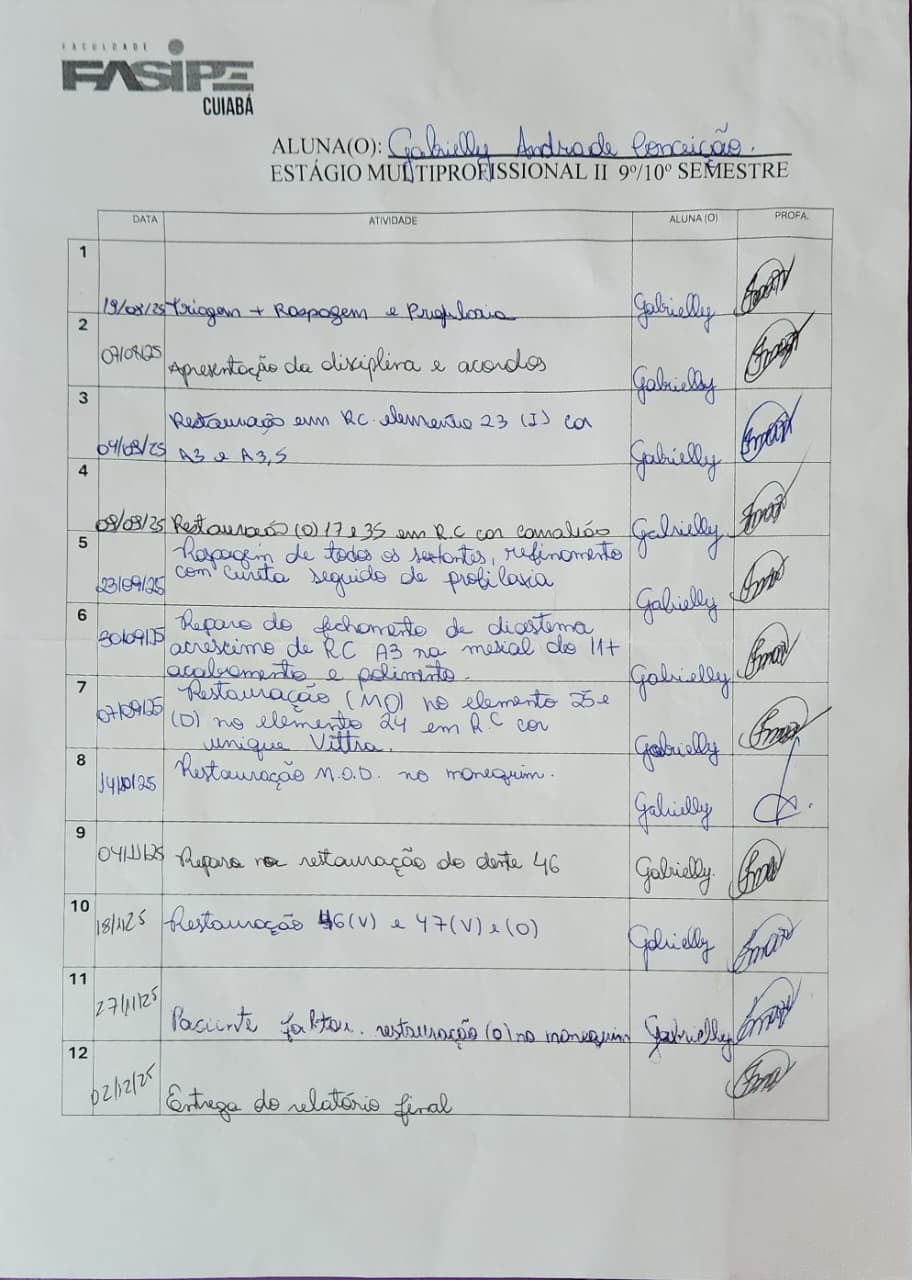 FACULDADE
FASIPE
CUIABÁ
ALUNA(O): Gabrielly Andrade Conceição.
ESTÁGIO MULTIPROFISSIONAL II 9º/10º SEMESTRE
DATA ATIVIDADE ALUNA(O) PROFA.
1
19/08/25 Triagem + Raspagem e Profilaxia Gabrielly
2
07/08/25 Apresentação da disciplina e acordos Gabrielly
3
Restauração em RC elemento 23 (I) cor
09/08/25 A3 e A3,5 Gabrielly
4
09/09/25 Restauração (O) 17 e 35 em R.C cor Gabrielly
5
Raspagem de todos os sextantes, refinamento
23/09/25 com cureta seguido de profilaxia Gabrielly
6
Reparo do fechamento de diastema
30/09/25 acréscimo de RC A3 na mesial do 11+
acabamento e polimento. Gabrielly
7
Restauração (MO) no elemento 25 e
07/09/25 (D) no elemento 24 em R.C cor
unique Vittra. Gabrielly
8
14/10/25 Restauração M.O.D. no manequim.
Gabrielly
9
04/11/25 Reparo na restauração do dente 46 Gabrielly.
10
18/11/25 Restauração 46(V) e 47(V) e (O) Gabrielly
11
27/11/25
Paciente faltou. restauração (O) no manequim Gabrielly
12
02/12/25
Entrega do relatório final